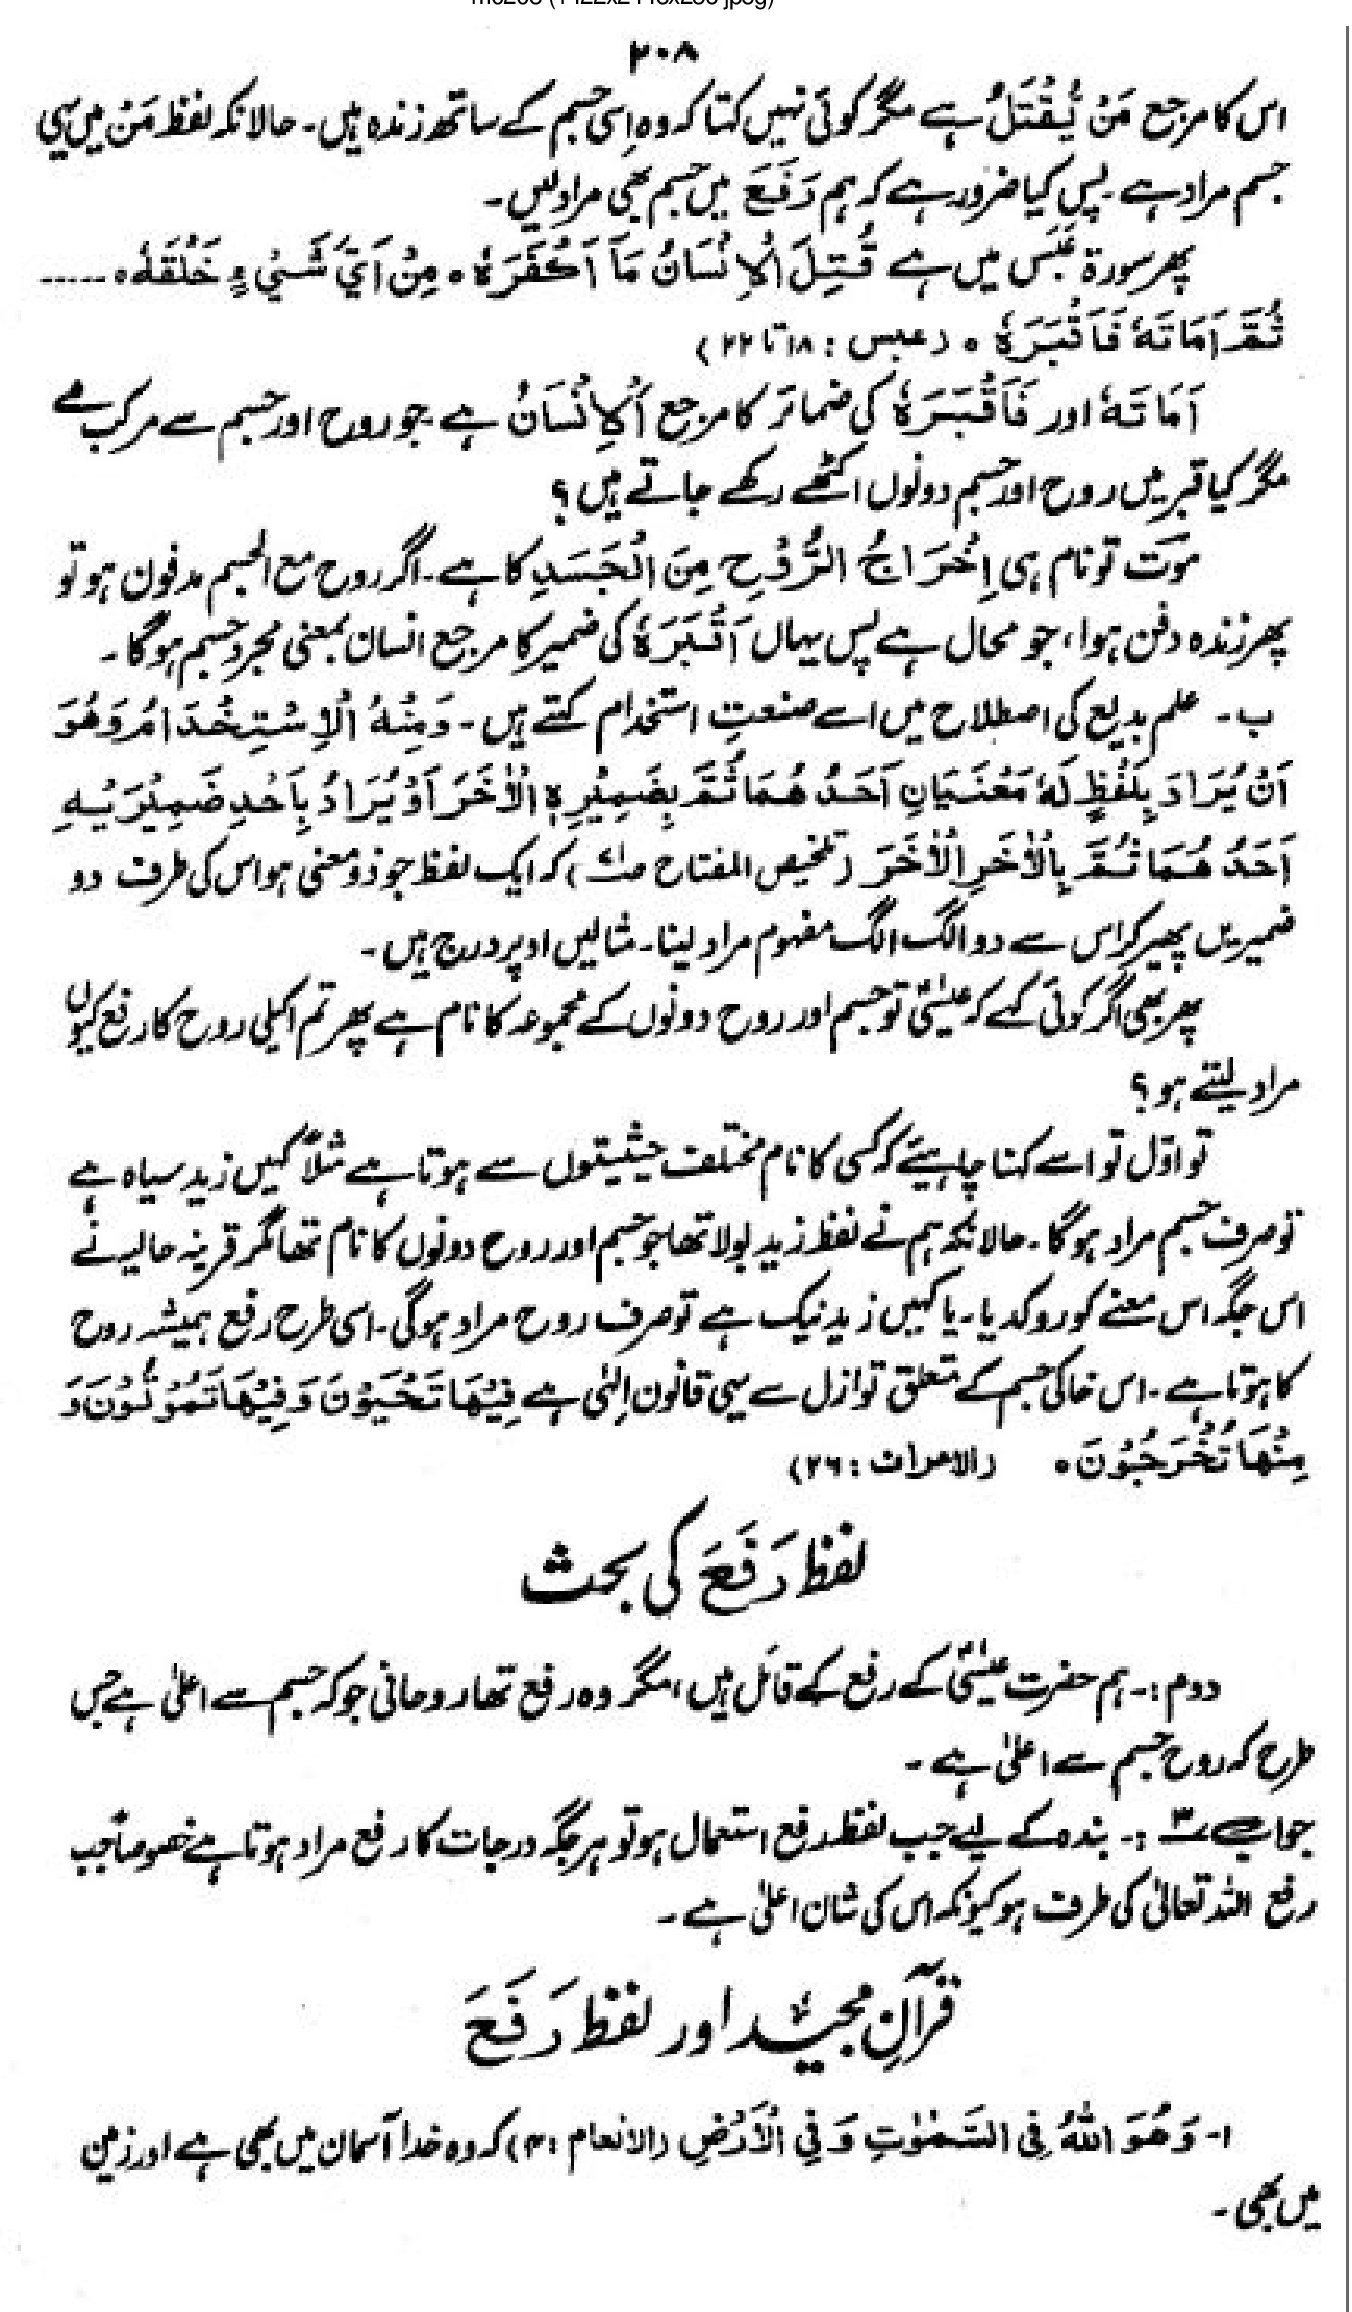 ۲۰۸
اس کا مرجع مَنْ یُقْتَلُ ہے مگر کوئی نہیں کہتا کہ وہ اِسی جسم کے ساتھ زندہ ہیں۔ حالانکہ لفظ مَنْ میں یہی
جسم مراد ہے۔ پس کیا ضرور ہے کہ ہم رَفَعَ میں جسم بھی مراد لیں۔
پھر سورۃ عَبَس میں ہے قُتِلَ الْاِنْسَانُ مَآ اَکْفَرَہٗ ۰ مِنْ اَیِّ شَیْ ءٍ خَلَقَہٗ ۰ .....
ثُمَّ اَمَاتَہٗ فَاَقْبَرَہٗ ۰ (عبس : ۱۸ تا ۲۲)
اَمَاتَہٗ اور فَاَقْبَرَہٗ کی ضمائر کا مرجع اَلْاِنْسَانُ ہے جو روح اور جسم سے مرکب ہے
مگر کیا قبر میں روح اور جسم دونوں اکٹھے رکھے جاتے ہیں؟
موت تو نام ہی اِخْرَاجُ الرُّوْحِ مِنَ الْجَسَدِ کا ہے۔ اگر روح مع الجسم مدفون ہو تو
پھر زندہ دفن ہوا، جو محال ہے پس یہاں اَقْبَرَہٗ کی ضمیر کا مرجع انسان بمعنی مجرد جسم ہوگا۔
ب۔ علم بدیع کی اصطلاح میں اسے صنعتِ استخدام کہتے ہیں۔ وَمِنْہُ الْاِسْتِخْدَامُ وَھُوَ
اَنْ یُرَادَ بِلَفْظٍ لَہٗ مَعْنَیَانِ اَحَدُ ھُمَا ثُمَّ بِضَمِیْرِہٖ الْاٰخَرَ اَوْ یُرَادُ بِاَحَدِ ضَمِیْرَیْہِ
اَحَدُ ھُمَا ثُمَّ بِالْاٰخَرِ الْاٰخَرَ (تلخیص المفتاح) کہ ایک لفظ جو ذو معنی ہو اس کی طرف دو
ضمیریں پھیر کر اس سے دو الگ الگ مفہوم مراد لینا۔ مثالیں اوپر درج ہیں۔
پھر بھی اگر کوئی کہے کہ عیسٰیؑ تو جسم اور روح دونوں کے مجموعہ کا نام ہے پھر تم اکیلی روح کا رفع کیوں
مراد لیتے ہو؟
تو اوّل تو اسے کہنا چاہیئے کہ کسی کا نام مختلف حیثیتوں سے ہوتا ہے مثلاً کہیں زید سیاہ ہے
تو صرف جسم مراد ہو گا۔ حالانکہ ہم نے لفظ زید بولا تھا جو جسم اور روح دونوں کا نام تھا مگر قرینہ حالیہ نے
اس جگہ اس معنے کو روکدیا۔ یا کہیں زید نیک ہے تو صرف روح مراد ہوگی۔ اسی طرح رفع ہمیشہ روح
کا ہوتا ہے۔ اس خاکی جسم کے متعلق تو ازل سے یہی قانون الٰہی ہے فِیْھَا تَحْیَوْنَ وَ فِیْھَا تَمُوْتُوْنَ وَ
مِنْھَا تُخْرَجُوْنَ ۰ (الاعراف : ۲۶)
لفظ رَفَعَ کی بحث
دوم :۔ ہم حضرت عیسٰیؑ کے رفع کے قائل ہیں، مگر وہ رفع تھا روحانی جو کہ جسم سے اعلیٰ ہے جس
طرح کہ روح جسم سے اعلیٰ ہے۔
جواب ۳ :۔ بندہ کے لیے جب لفظ رفع استعمال ہو تو ہر جگہ درجات کا رفع مراد ہوتا ہے خصوصاً جب
رفع اللہ تعالیٰ کی طرف ہو کیونکہ اس کی شان اعلیٰ ہے۔
قرآنِ مجید اور لفظ رَفَعَ
۱۔ وَ ھُوَ اللّٰہُ فِی السَّمٰوٰتِ وَ فِی الْاَرْضِ (الانعام : ۴) کہ وہ خدا آسمان میں بھی ہے اور زمین
میں بھی۔